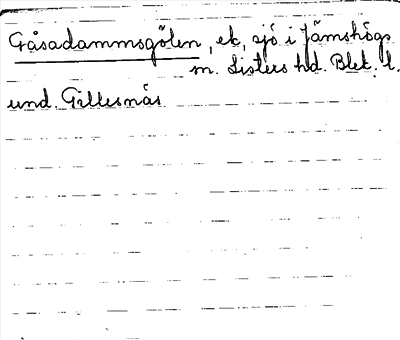 Gåsadammsgölen, ek, sjö i Jämshögs
sn. Listers hd. Blek. l.
und. Gillesnäs